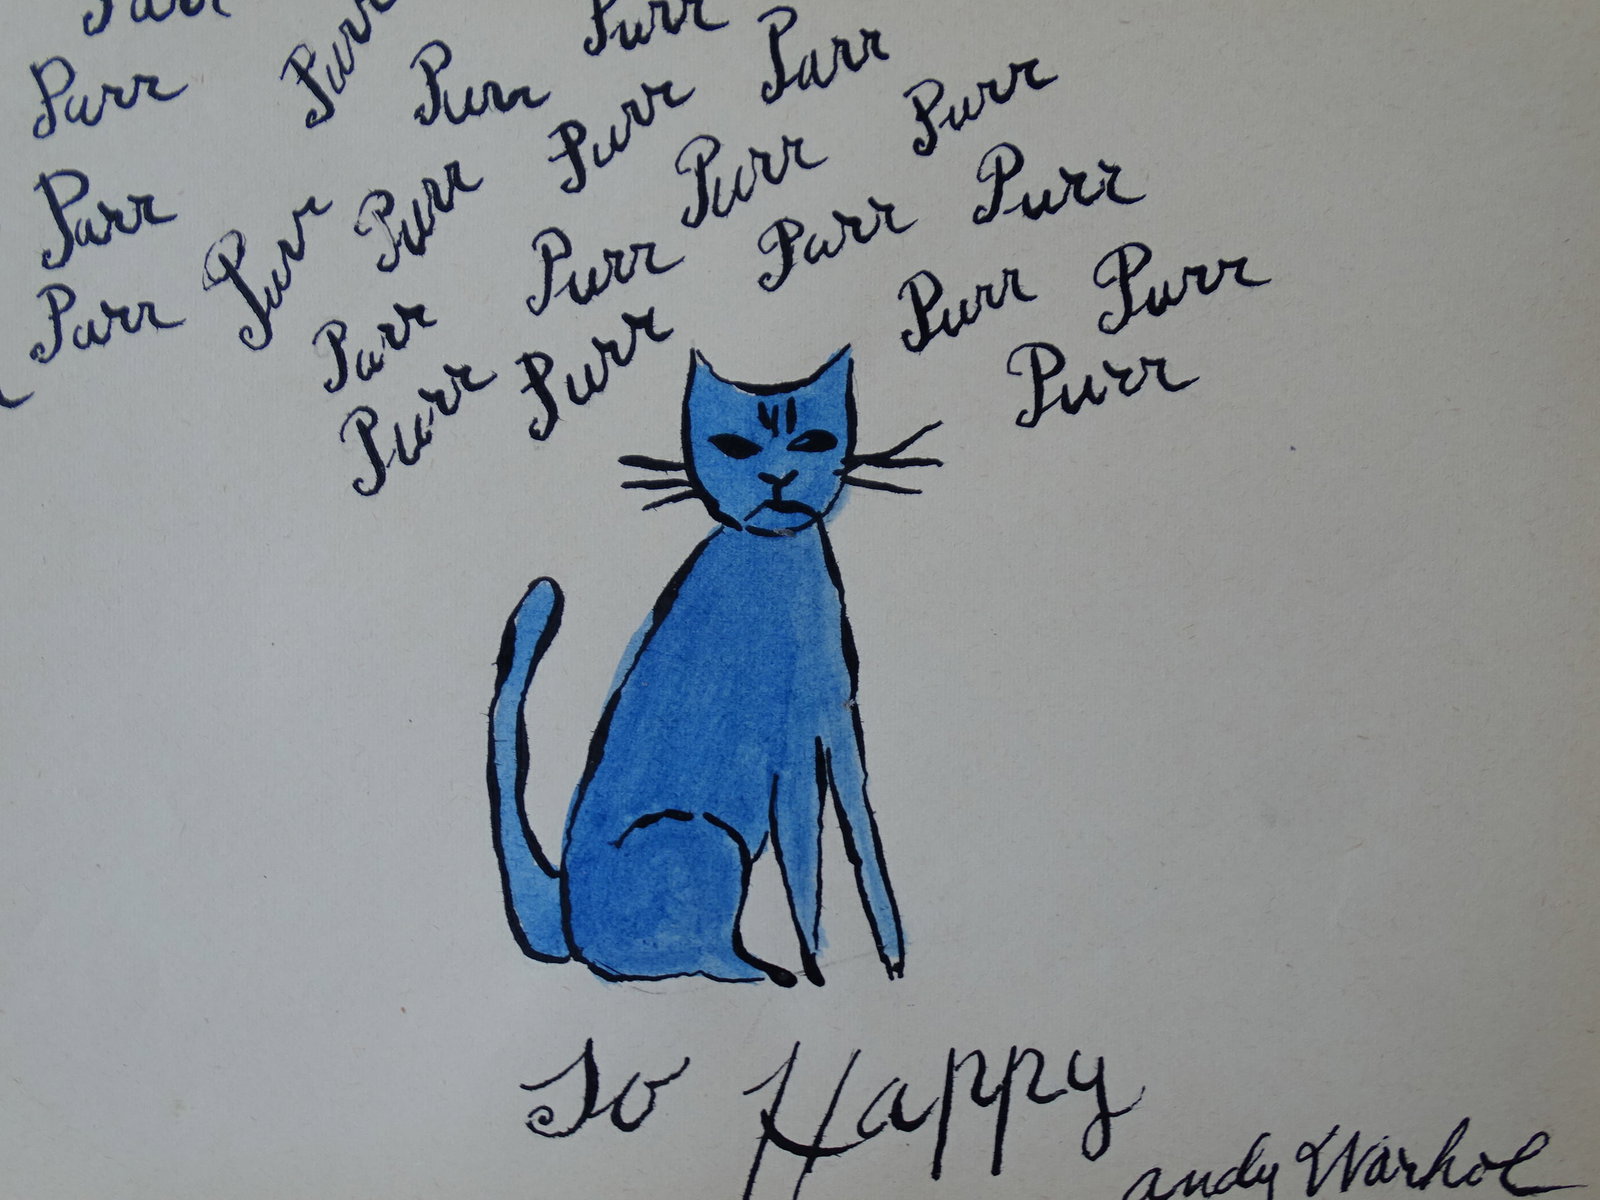 Parr Purr Purr
Parr Purr Purr Parr Purr
Parr Purr Purr Purr Purr
Parr Purr Parr Purr Parr Purr
Purr Purr Purr Purr
So Happy
andy Warhol